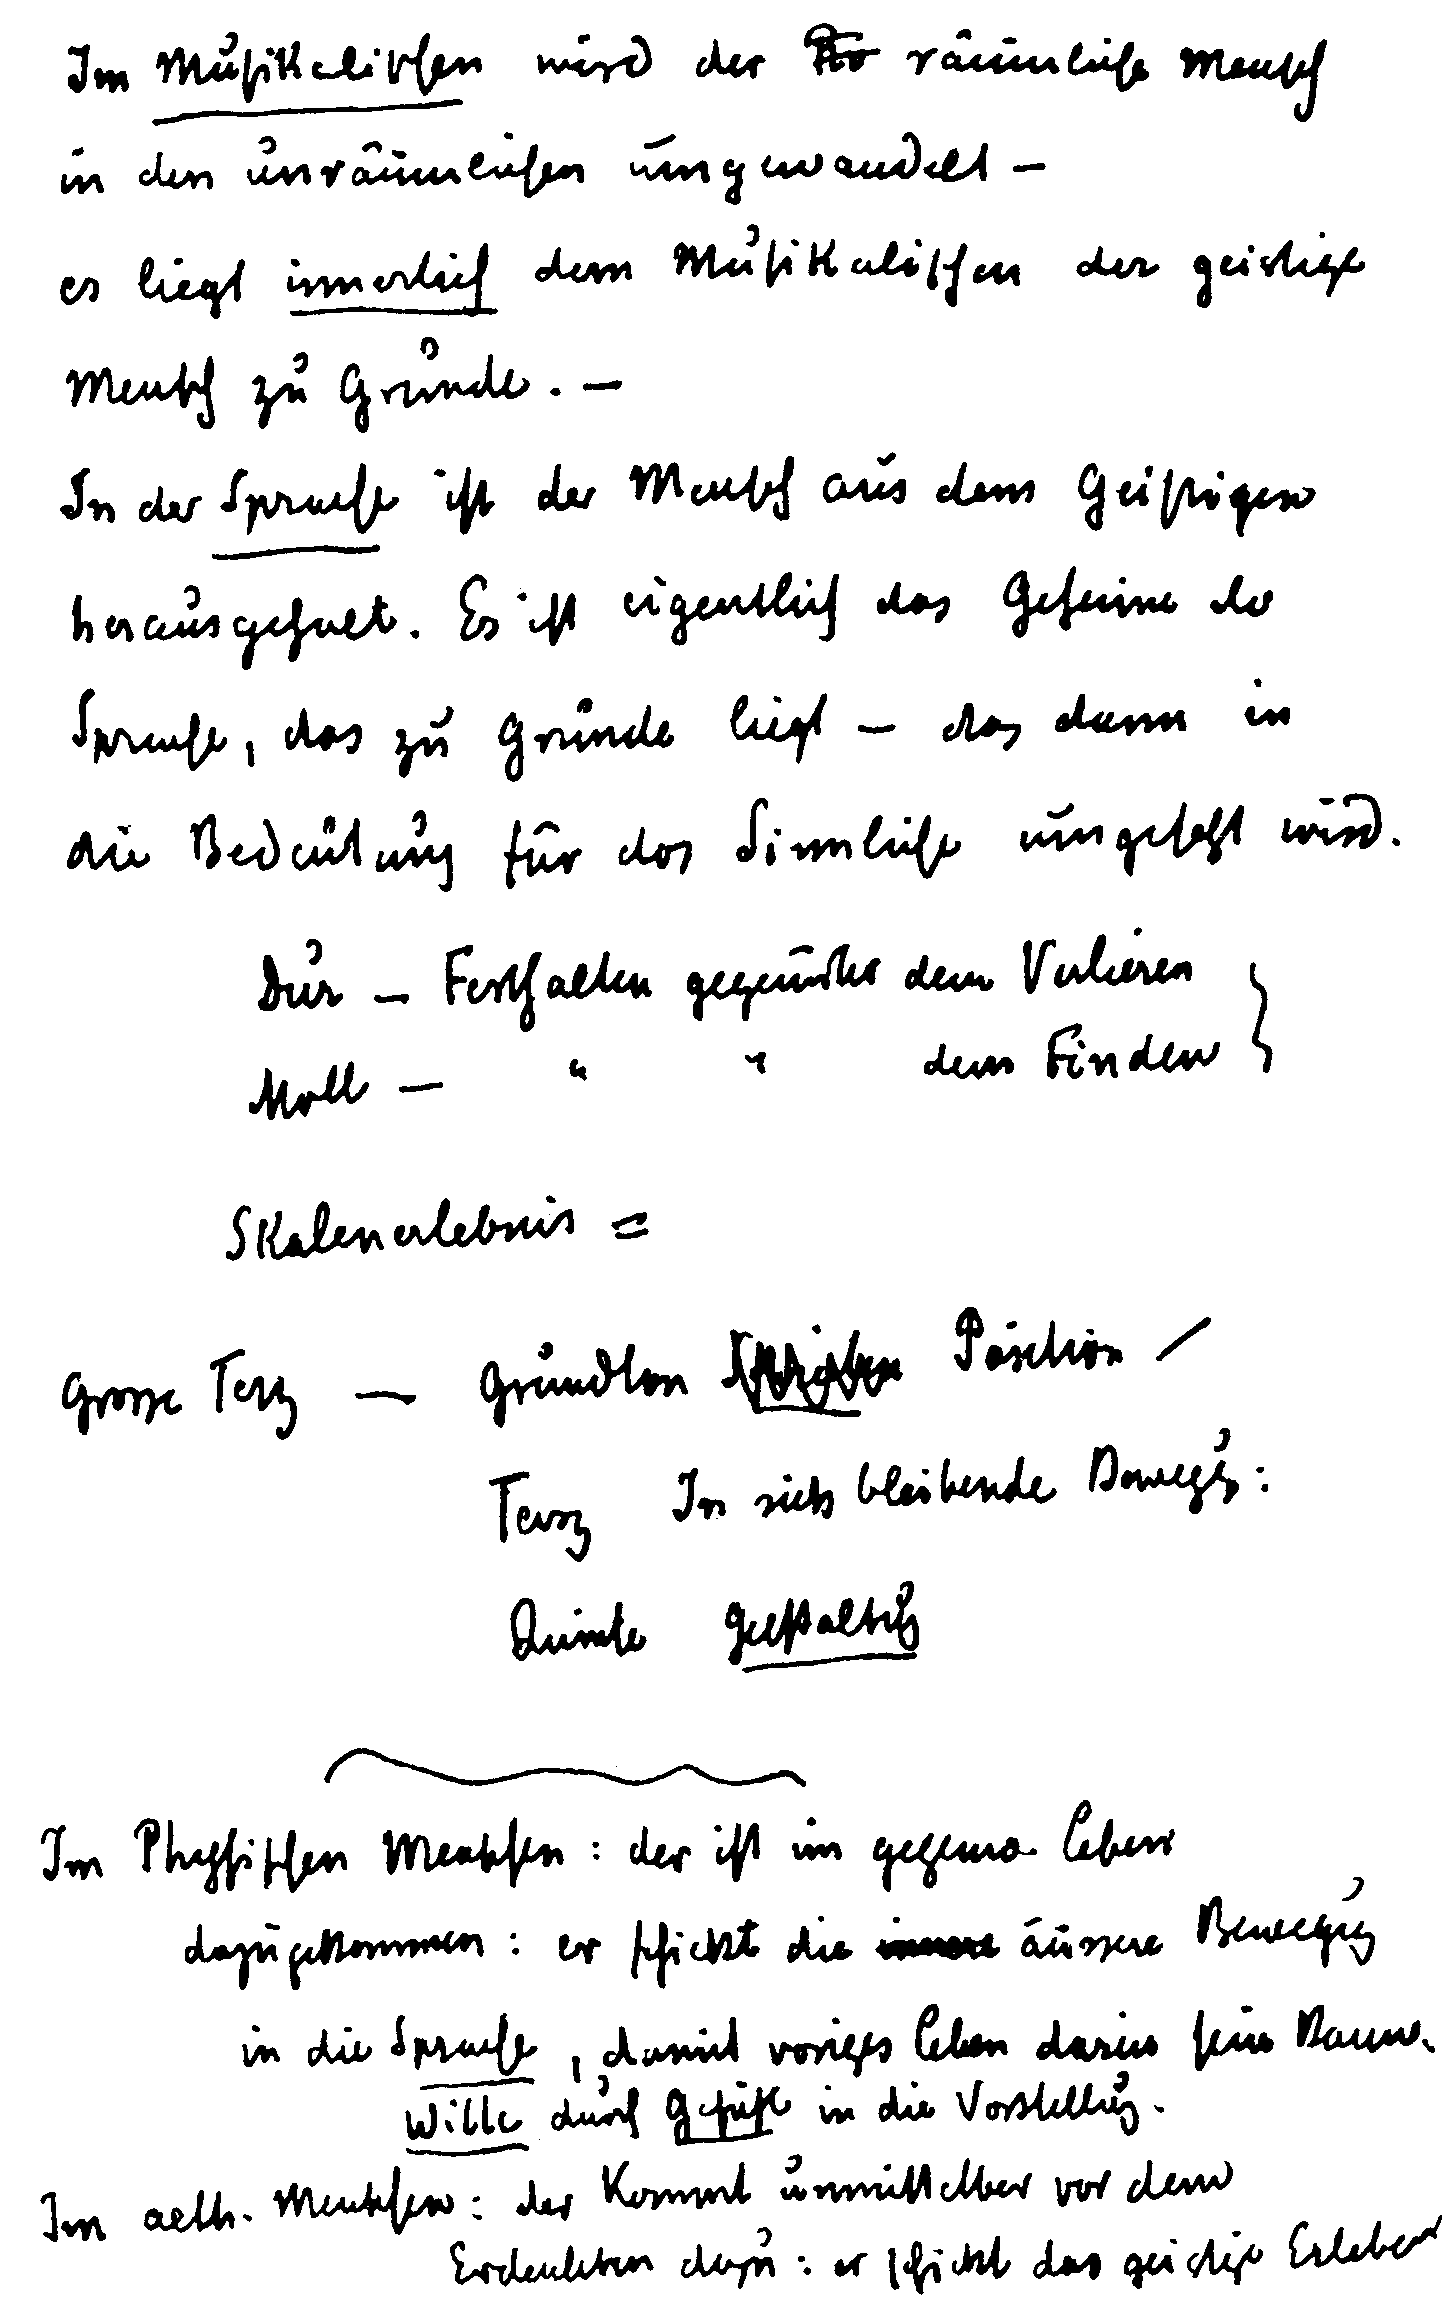 Im Musikalischen wird der räumliche Mensch
in den unräumlichen umgewandelt –
es liegt innerlich dem Musikalischen der geistige
Mensch zu Grunde. –
In der Sprache ist der Mensch aus dem Geistigen
herausgeholt. Es ist eigentlich das Geheime der
Sprache, das zu Grunde liegt – das dann in
die Bedeutung für das Sinnliche umgesetzt wird.
Dur – Festhalten gegenüber dem Verlieren
Moll – " " dem Finden
Skalenerlebnis =
Grosse Terz — Grundton Position /
Terz In sich bleibende Bewegg:
Quinte Gestaltug
Im Physischen Menschen: der ist im gegenw. Leben
dazugekommen: er schickt die innere äussere Bewegug
in die Sprache, damit voriges Leben darin sein
Wille durch Gefühl in die Vorstellug.
Im aeth. Menschen: der kommt unmittelbar vor dem
Erdenleben dazu: er schickt das geistige Erleben